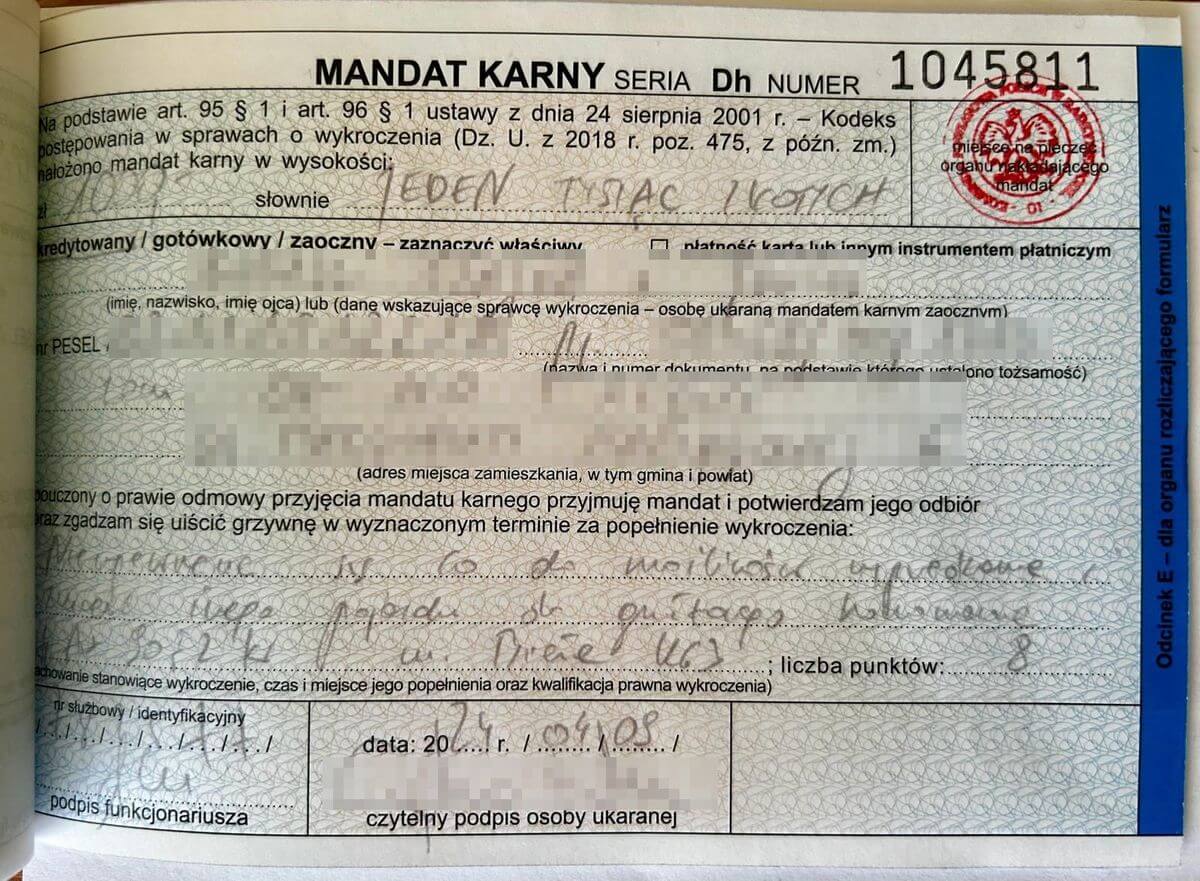 MANDAT KARNY SERIA Dh NUMER 1045811
Na podstawie art. 95 § 1 i art. 96 § 1 ustawy z dnia 24 sierpnia 2001 r. – Kodeks
postępowania w sprawach o wykroczenia (Dz. U. z 2018 r. poz. 475, z późn. zm.)
nałożono mandat karny w wysokości:
miejsce na pieczęć
organu nakładającego
mandat
zł słownie JEDEN TYSIĄC ZŁOTYCH
kredytowany / gotówkowy / zaoczny – zaznaczyć właściwy płatność kartą lub innym instrumentem płatniczym
(imię, nazwisko, imię ojca) lub (dane wskazujące sprawcę wykroczenia – osobę ukaraną mandatem karnym zaocznym)
nr PESEL
(nazwa i numer dokumentu, na podstawie którego ustalono tożsamość)
(adres miejsca zamieszkania, w tym gmina i powiat)
pouczony o prawie odmowy przyjęcia mandatu karnego przyjmuję mandat i potwierdzam jego odbiór
oraz zgadzam się uiścić grzywnę w wyznaczonym terminie za popełnienie wykroczenia:
do możliwości
pojazdu do hamowania
; liczba punktów: 8
zachowanie stanowiące wykroczenie, czas i miejsce jego popełnienia oraz kwalifikacja prawna wykroczenia)
nr służbowy / identyfikacyjny
data: 2024 r. / 04 / 09 /
podpis funkcjonariusza
czytelny podpis osoby ukaranej
Odcinek E – dla organu rozliczającego formularz